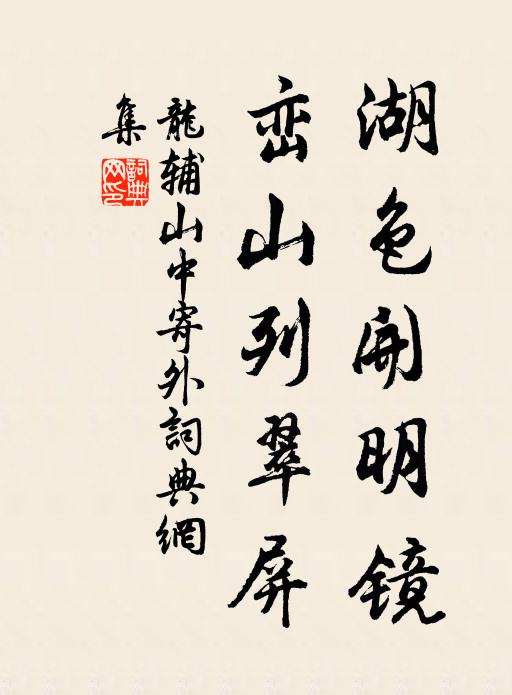 湖色开明镜
峦山列翠屏
龍辅山中寄外詞典網
集
詞典網印